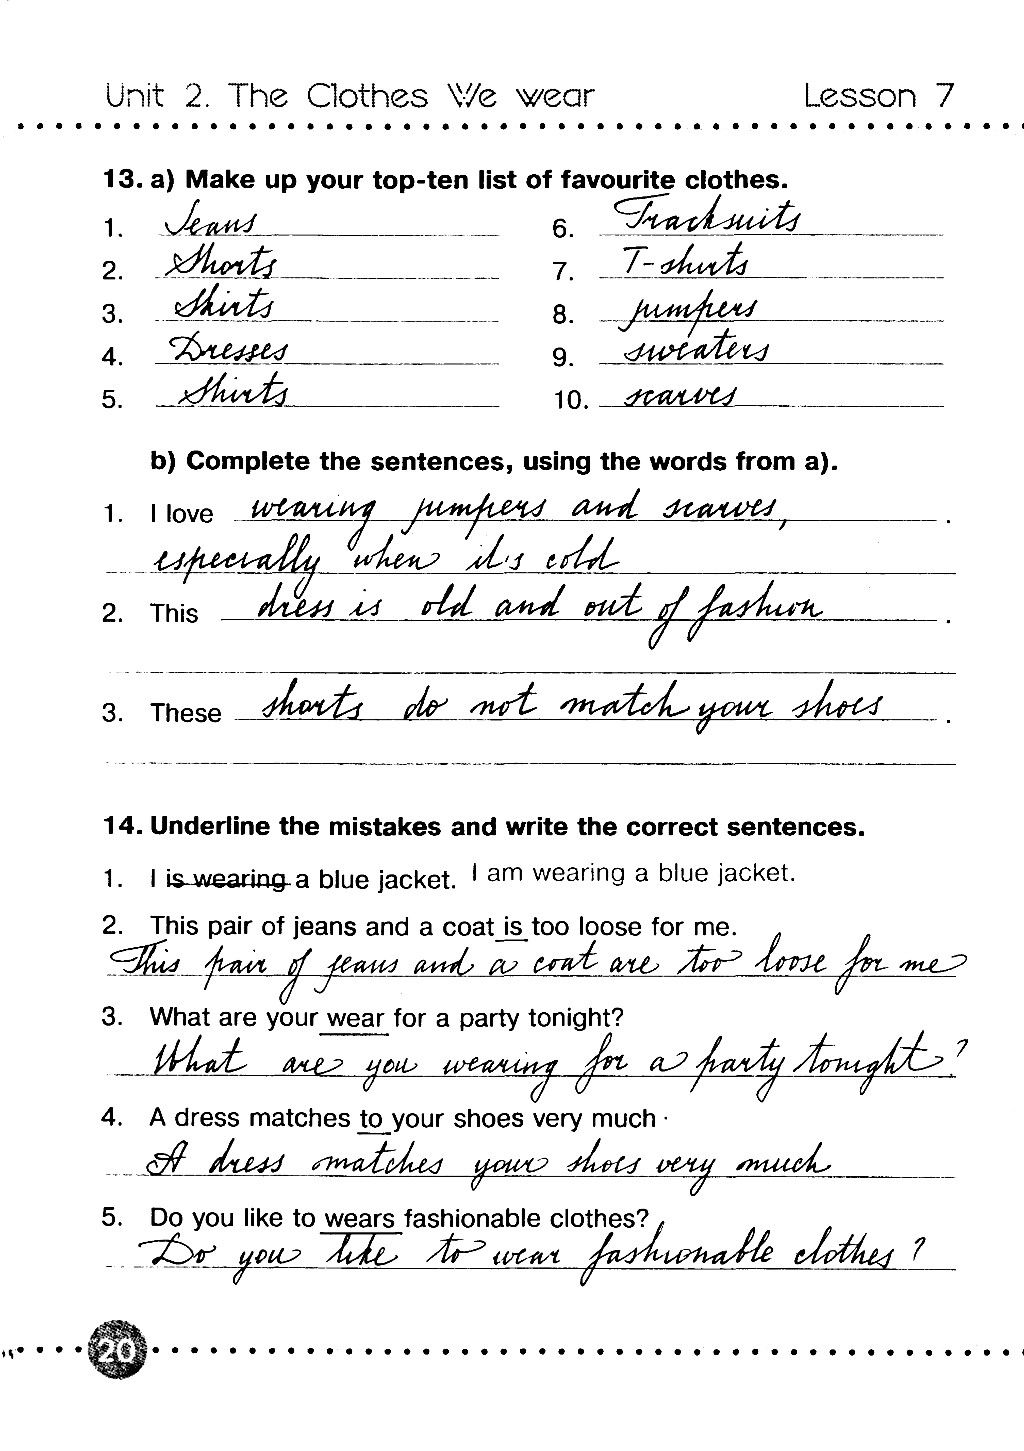 Unit 2. The Clothes We wear Lesson 7
13. a) Make up your top-ten list of favourite clothes.
1. Jeans 6. Tracksuits
2. Shorts 7. T-shirts
3. Skirts 8. jumpers
4. Dresses 9. sweaters
5. Shirts 10. scarves
b) Complete the sentences, using the words from a).
1. I love wearing jumpers and scarves, .
especially when it's cold
2. This dress is old and out of fashion .
3. These shorts do not match your shoes .
14. Underline the mistakes and write the correct sentences.
1. I is wearing a blue jacket. I am wearing a blue jacket.
2. This pair of jeans and a coat is too loose for me.
This pair of jeans and a coat are too loose for me
3. What are your wear for a party tonight?
What are you wearing for a party tonight?
4. A dress matches to your shoes very much.
A dress matches your shoes very much
5. Do you like to wears fashionable clothes?
Do you like to wear fashionable clothes?
20